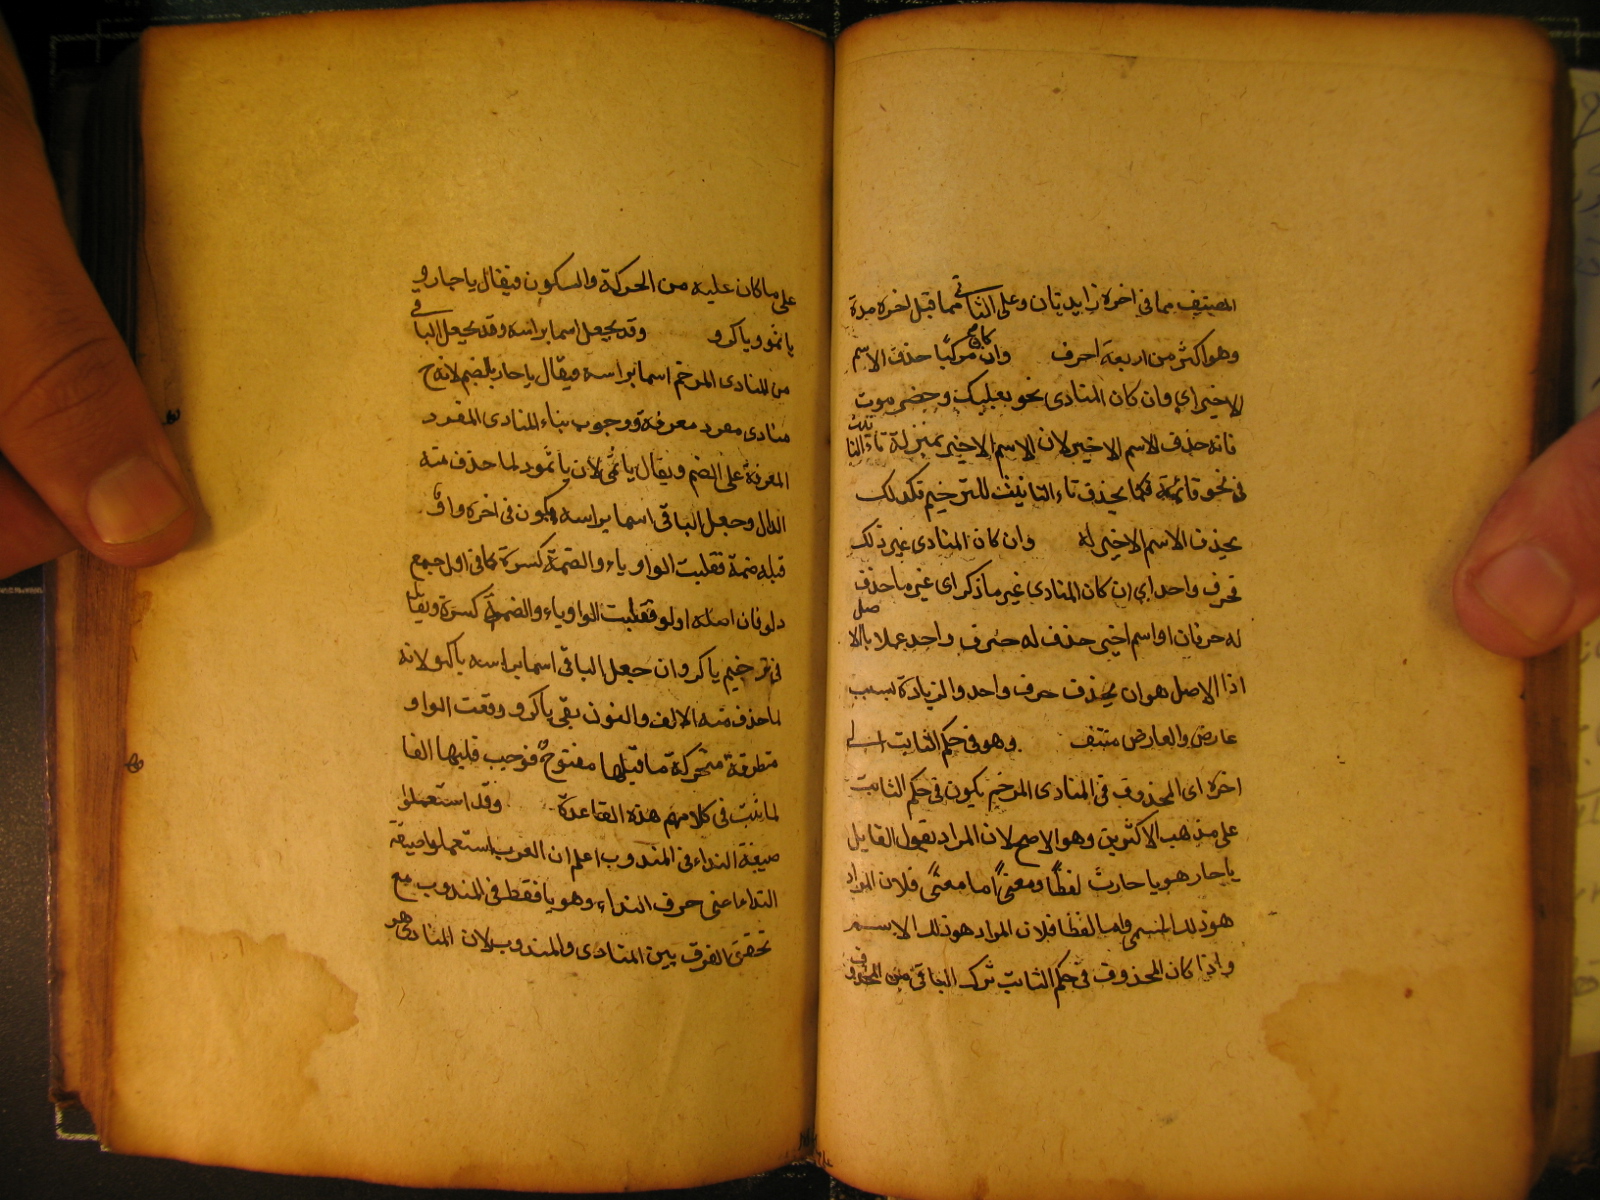 المصنف بما في اخره زايدتان وعلى الثاني مما قبل اخره مدة
وهو اكثر من اربعة احرف وان كان مركبا حذف الاسم
الاخير اي وان كان المنادى نحو بعلبك وحضر موت
فانه حذف الاسم الاخير لان الاسم الاخير بمنزلة تاء التانيث
في نحو قائمة فكما يحذف تاء التانيث للترخيم فكذلك
يحذف الاسم الاخير له وان كان المنادى غير ذلك
فحرف واحد اي ان كان المنادى غير ما ذكر اي غير ما حذف
له حرفان او اسم اخير حذف له حرف واحد عملا بالاصل
اذا الاصل هو ان يحذف حرف واحد والزيادة بسبب
عارض والعارض منتف وهو في حكم الثابت
اخره اى المحذوف في المنادى المرخم يكون في حكم الثابت
على مذهب الاكثرين وهو الاصح لان المراد بقول القايل
يا حار هو يا حارث لفظًا ومعنىً اما معنىً فلان المراد
هو ذلك المسمى واما لفظا فلان المراد هو ذلك الاسم
واذا كان المحذوف في حكم الثابت ترك الباقي من المحذوف
على ما كان عليه من الحركة والسكون فيقال يا حار و
يا ثمو ويا كرو وقد يجعل اسما براسه وقد يجعل الباقي
من المنادى المرخم اسما براسه فيقال يا حار بالضم لانه ح
منادى مفرد معرفة ووجوب بناء المنادى المفرد
المعرفة على الضم ويقال يا ثمى لان يا ثمود لما حذف منه
الدال وجعل الباقي اسما براسه يكون في اخره واو
قبله ضمة فقلبت الواو ياء والضمة كسرة كما في ادل جمع
دلو فان اصله ادلو فقلبت الواو ياء والضمة كسرة ويقال
في ترخيم يا كروان جعل الباقي اسما براسه يا كرا لانه
لما حذف منه الالف والنون بقي يا كرو وقعت الواو
متطرفة متحركة ما قبلها مفتوح فوجب قلبها الفا
لما ثبت في كلامهم هذه القاعدة وقد استعملوا
صيغة النداء في المندوب اعلم ان العرب استعملوا صيغة
النداء اعني حرف النداء وهو يا فقط في المندوب مع
تحقق الفرق بين المنادى والمندوب لان المنادى هو